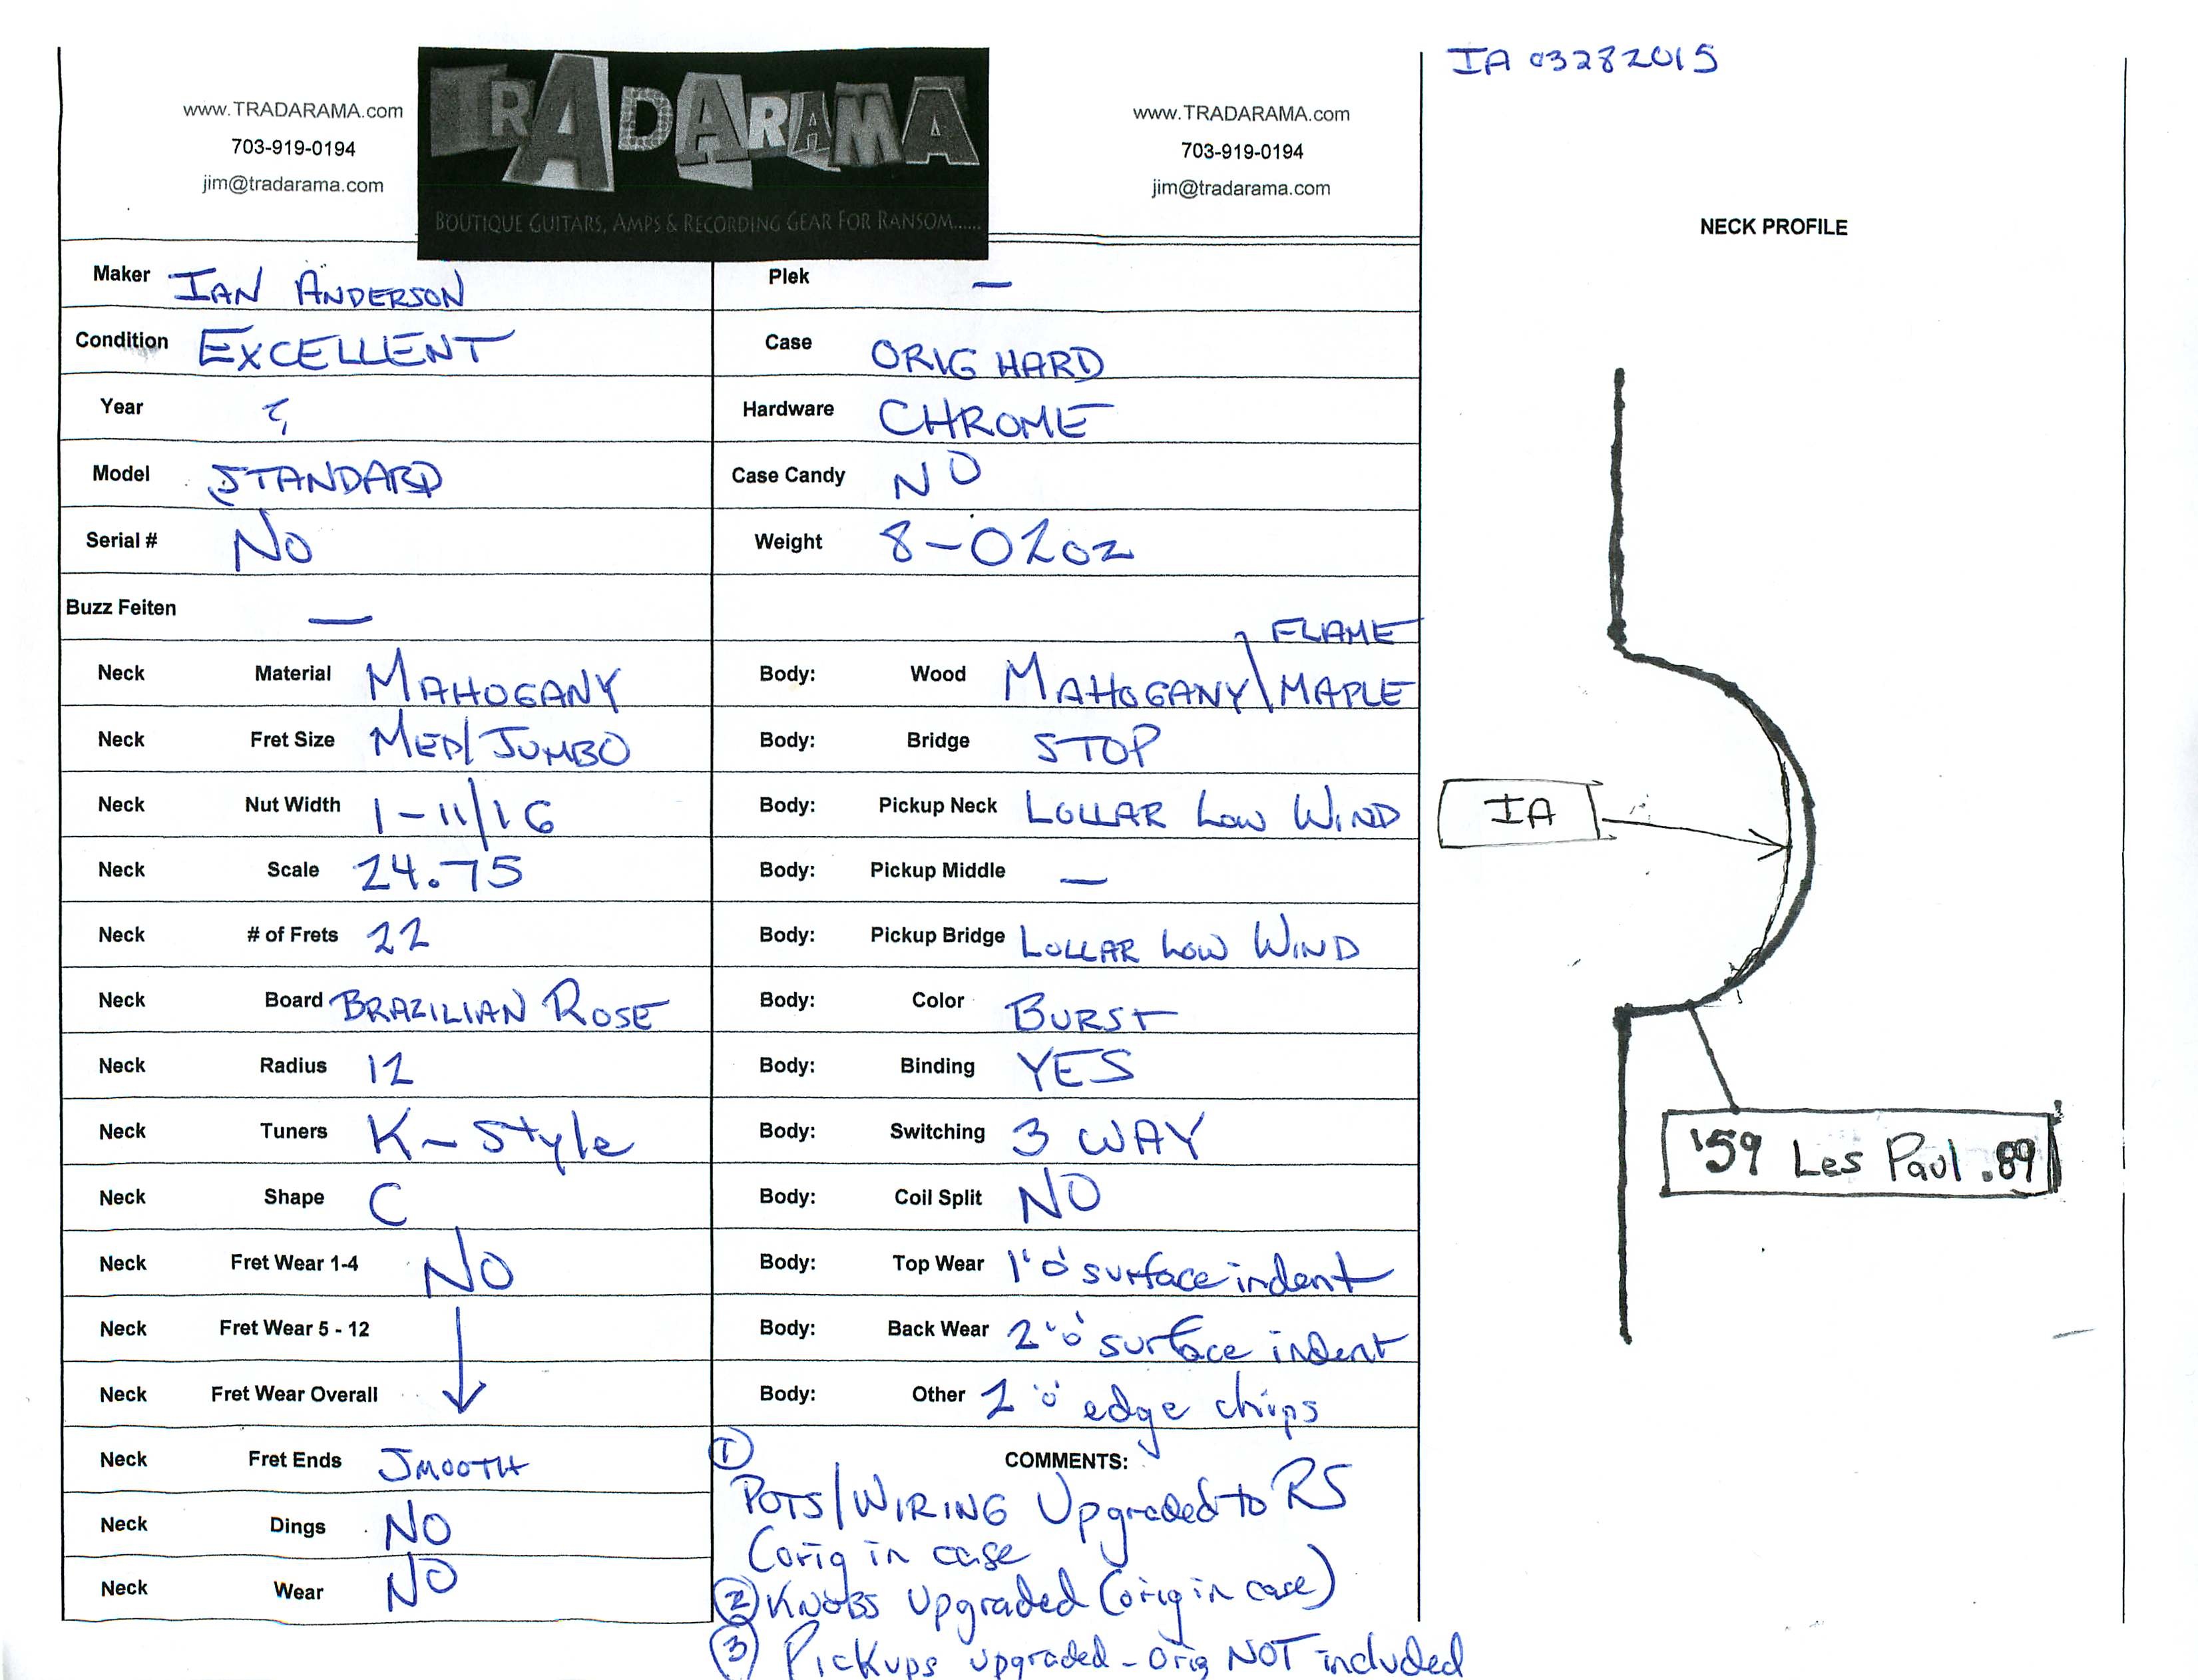 IA 03282015
www.TRADARAMA.com
703-919-0194
jim@tradarama.com
TRADARAMA
BOUTIQUE GUITARS, AMPS & RECORDING GEAR FOR RANSOM......
www.TRADARAMA.com
703-919-0194
jim@tradarama.com
NECK PROFILE
Maker IAN ANDERSON
Condition EXCELLENT
Year ?
Model STANDARD
Serial # No
Buzz Feiten —
Neck Material MAHOGANY
Neck Fret Size MED/JUMBO
Neck Nut Width 1-11/16
Neck Scale 24.75
Neck # of Frets 22
Neck Board BRAZILIAN ROSE
Neck Radius 12
Neck Tuners K-Style
Neck Shape C
Neck Fret Wear 1-4 NO
Neck Fret Wear 5 - 12
Neck Fret Wear Overall
Neck Fret Ends SMOOTH
Neck Dings NO
Neck Wear NO
Plek —
Case ORIG HARD
Hardware CHROME
Case Candy NO
Weight 8-02oz
FLAME
Body: Wood MAHOGANY\MAPLE
Body: Bridge STOP
Body: Pickup Neck LOLLAR Low WIND
Body: Pickup Middle —
Body: Pickup Bridge LOLLAR LOW WIND
Body: Color BURST
Body: Binding YES
Body: Switching 3 WAY
Body: Coil Split NO
Body: Top Wear 1 'o' surface indent
Body: Back Wear 2 'o' surface indent
Body: Other 2 'o' edge chips
COMMENTS:
① POTS/WIRING Upgraded to RS
(orig in case
② KNOBS Upgraded (orig in case)
③ Pickups upgraded - orig NOT included
IA
'59 Les Paul .89